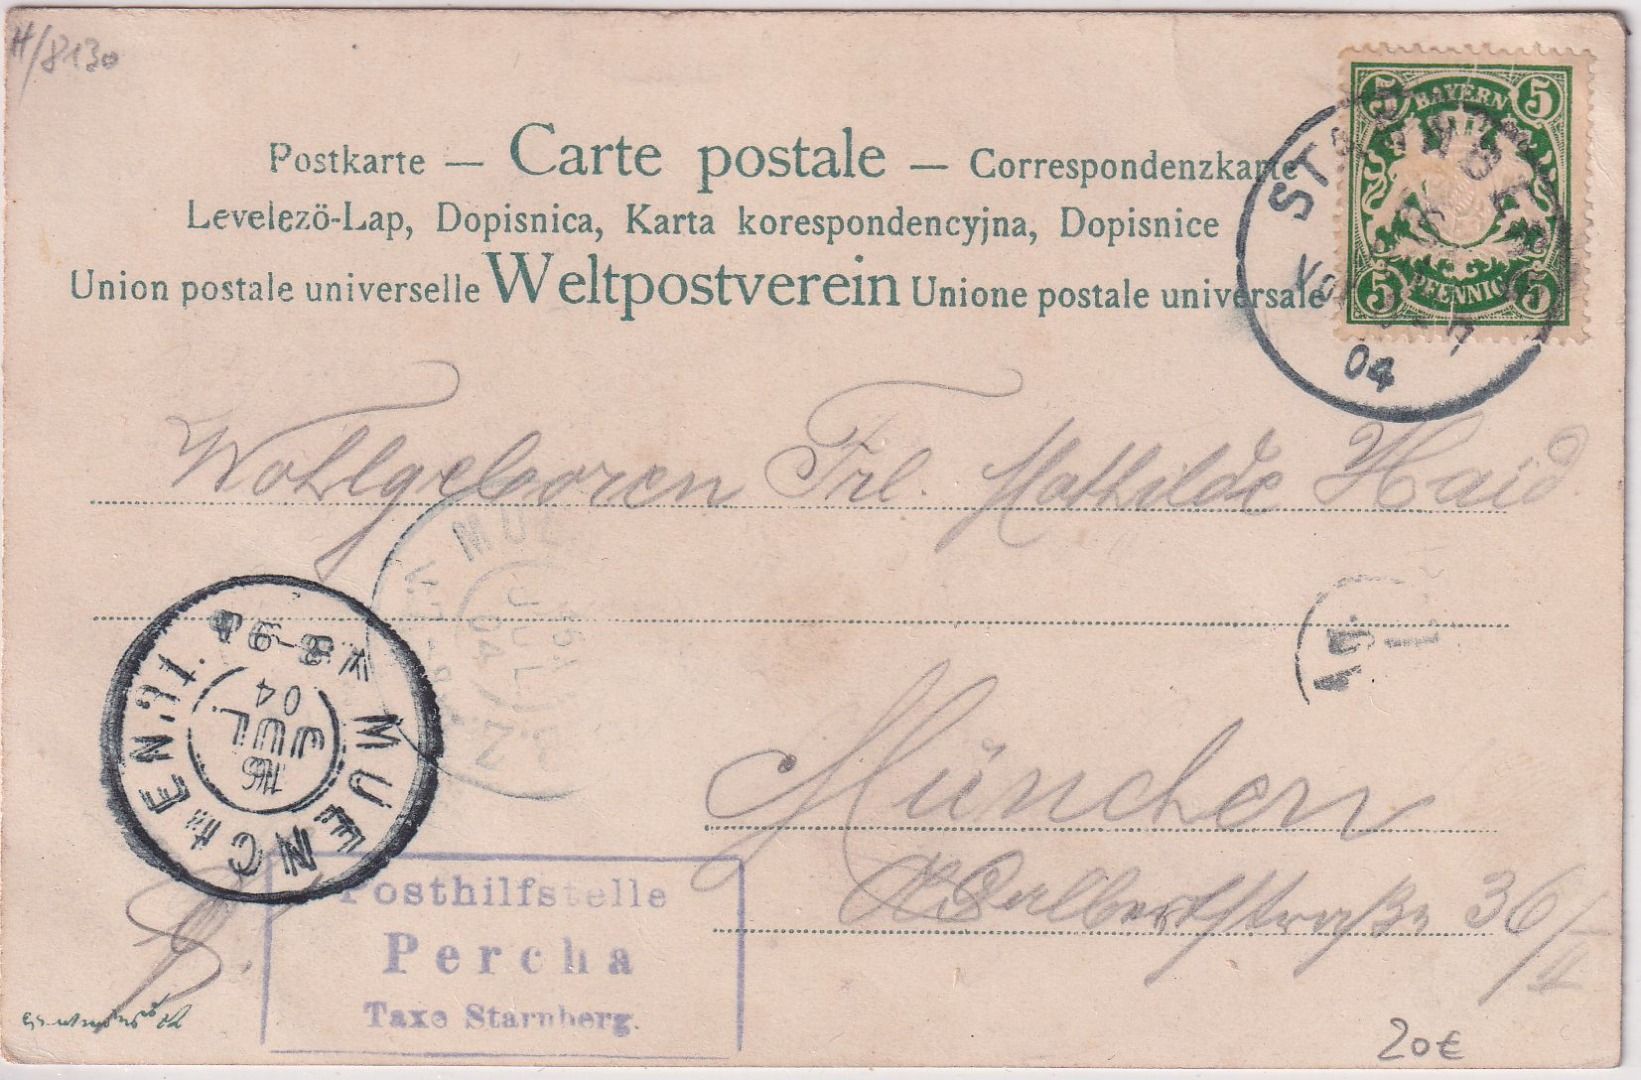 H/8130
Postkarte — Carte postale — Correspondenzkarte
Levelezö-Lap, Dopisnica, Karta korespondencyjna, Dopisnice
Union postale universelle Weltpostverein Unione postale universale
5 BAYERN 5
5 PFENNIG 5
04
Wohlgeboren Frl. Mathilde Haid
MUE
JUL
04
MUENCHEN
8-9
04
JUL
16
München
Adalbertstraße 36/II
Posthilfstelle
Percha
Taxe Starnberg.
20€